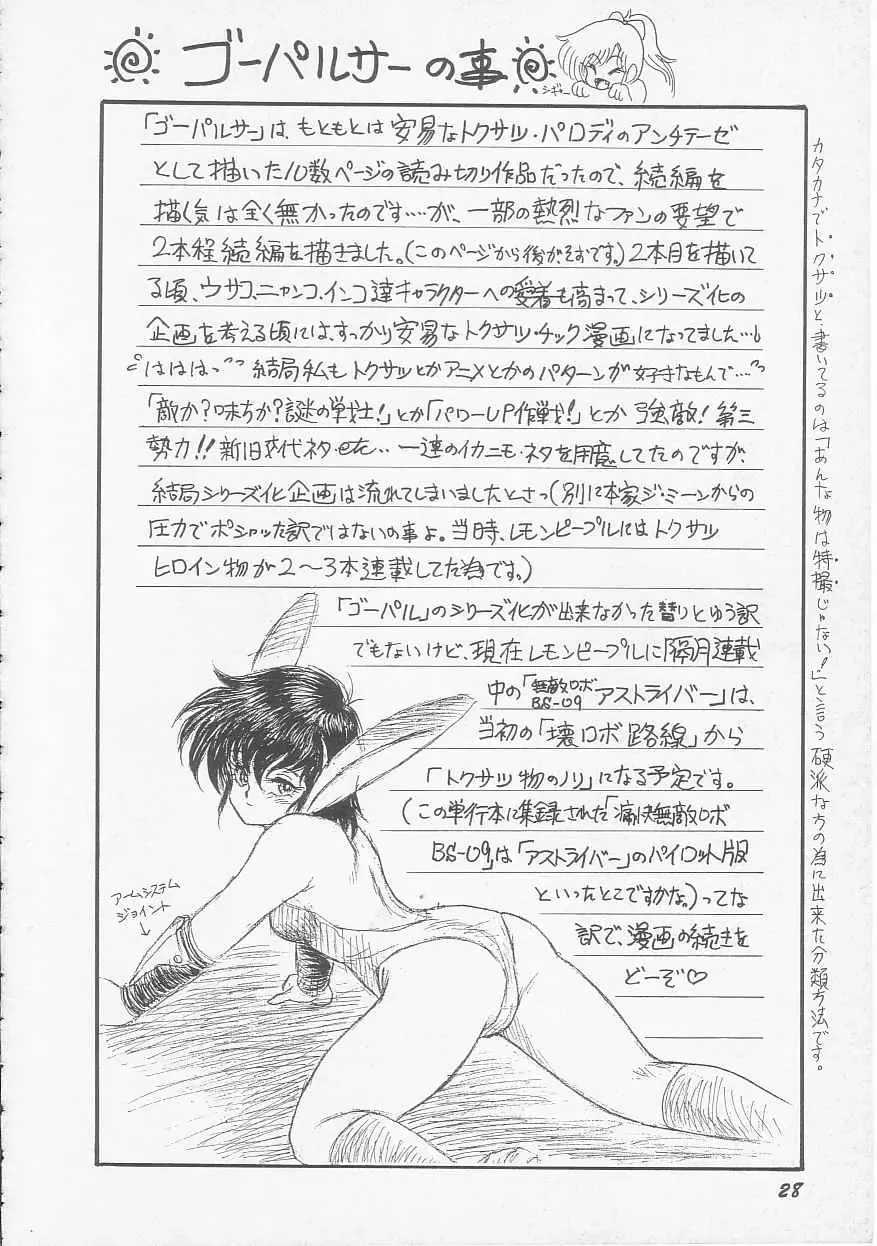 ゴーパルサーの事
シギャー
「ゴーパルサー」は、もともとは安易なトクサツ・パロディのアンチテーゼ
として描いた10数ページの読み切り作品だったので、続編を
描く気は全く無かったのです……が、一部の熱烈なファンの要望で
2本程続編を描きました。(このページから後がそれです。)2本目を描いて
る頃、ウサコ、ニャンコ、インコ達キャラクターへの愛着も高まって、シリーズ化の
企画を考える頃には、すっかり安易なトクサツ・チック漫画になってました…
はははっ 結局私もトクサツとかアニメとかのパターンが好きなもんで…
「敵か?味方か?謎の戦士!」とか「パワーUP作戦!」とか強敵!第三
勢力!!新旧交代ネタ・etc… 一連のイカニモ・ネタを用意してたのですが、
結局シリーズ化企画は流れてしまいましたとさっ(別に本家ジ・ミーンからの
圧力でポシャッた訳ではないの事よ。当時、レモンピープルにはトクサツ
ヒロイン物が2〜3本連載してた為です。)
「ゴーパル」のシリーズ化が出来なかった替りとゆう訳
でもないけど、現在レモンピープルに隔月連載
中の「無敵ロボBS-09アストライバー」は、
当初の「壊ロボ路線」から
「トクサツ物のノリ」になる予定です。
(この単行本に集録された「痛快無敵ロボ
BS-09」は「アストライバー」のパイロット版
といったとこですかな。)ってな
訳で、漫画の続きを
どーぞ♡
アームシステム
ジョイント
↓
カタカナでトクサツと書いてるのは「あんな物は特撮じゃない!」と言う硬派な方の為に出来た分類方法です。
28